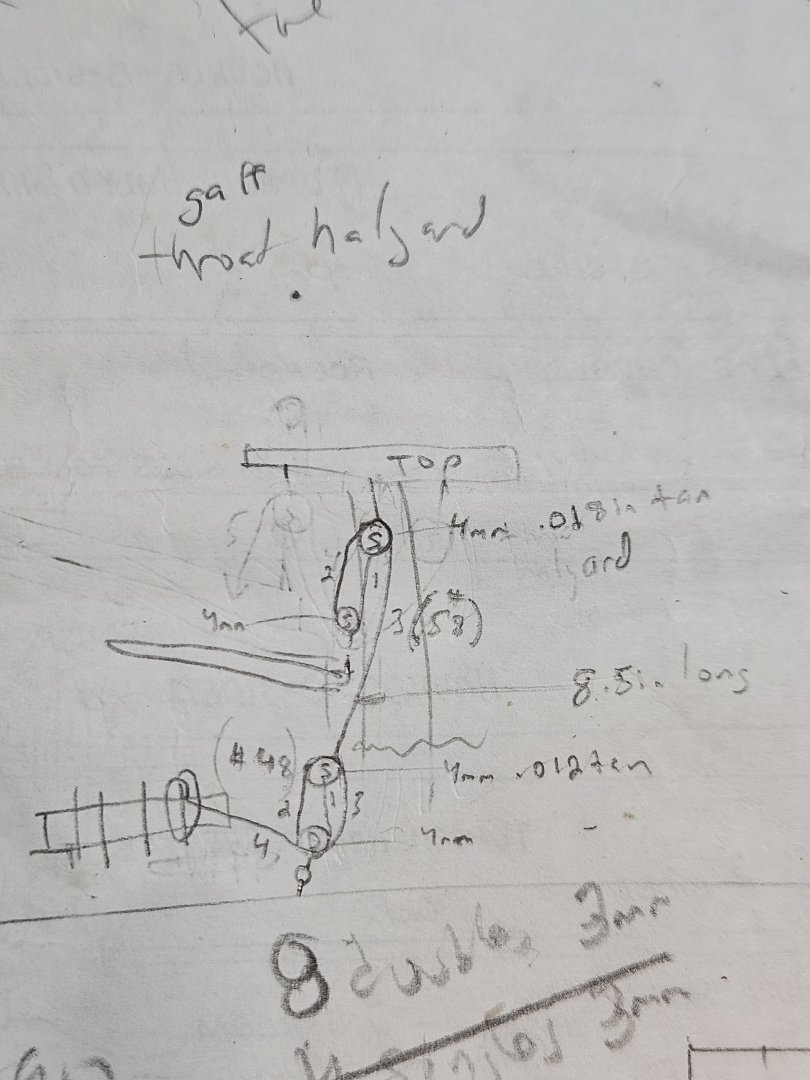 gaff
throat halyard
TOP
S
4mm .018in tan
2
1
4mm
S
3 (58#)
8.5in long
(#48)
S
4mm .012 tan
2
1
3
4
D
4mm
8 doubles 3mm
singles 3mm